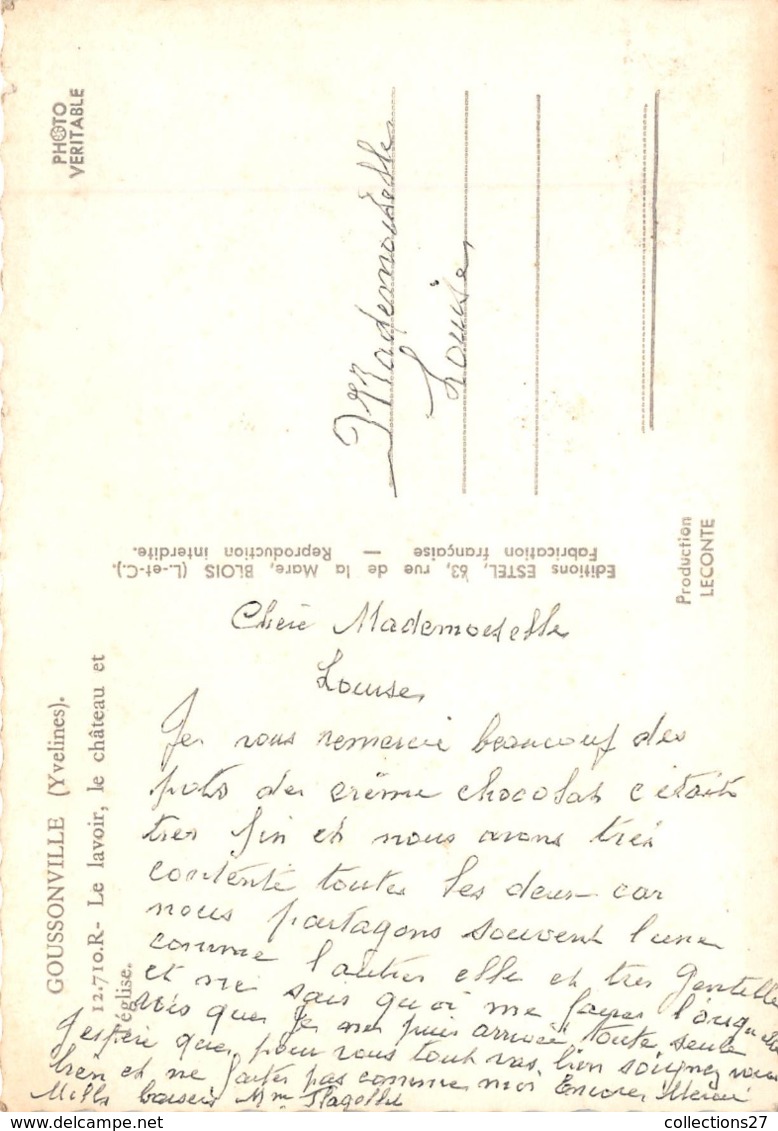 PHOTO
VERITABLE
Mademoiselle
Louise
Editions ESTEL, 63, rue de la Mare, BLOIS (L.-et-C.).
Fabrication française — Reproduction interdite.
Production
LECONTE
GOUSSONVILLE (Yvelines).
12.710.R- Le lavoir, le château et
l'église.
Chère Mademoiselle
Louise
Je vous remercie beaucouf des
pots de crème chocolat c'était
très fin et nous avons très
contente toutes les deux car
nous partagons souvent l'une
comme l'autre elle et très gentille
et ne sais quoi me faire
que je ne puis arrivée toute seule
J'espère que pour vous tout vas bien soignez vous
bien et ne faites pas comme moi Encore Merci
Mille baisers Mme
collections27
www.delcampe.net